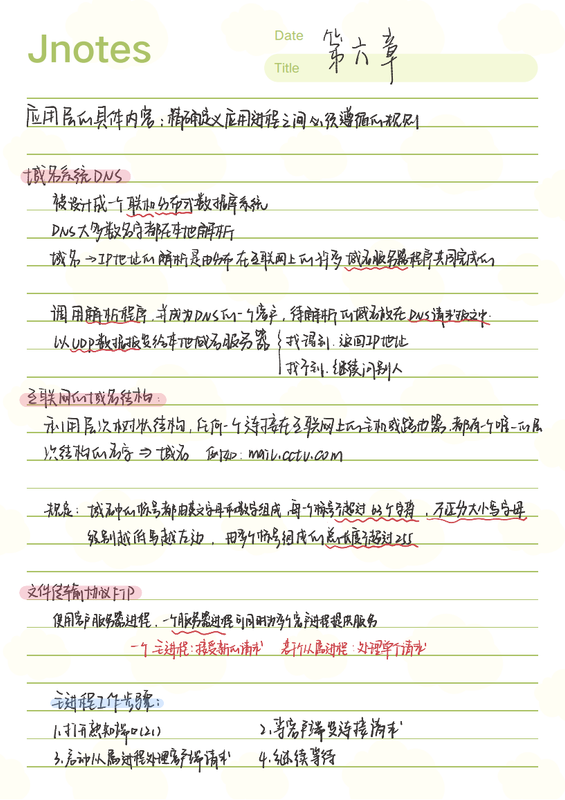 Jnotes
Date
Title
第六章
应用层的具体内容：精确定义应用进程之间必须遵循的规则
域名系统DNS
被设计成一个联机分布式数据库系统
DNS大多数名字都在本地解析
域名→IP地址的解析是由分布在互联网上的许多域名服务器程序共同完成的
调用解析程序，并成为DNS的一个客户，待解析的域名放在DNS请求报文中.
以UDP数据报发给本地域名服务器 找得到.返回IP地址
找不到.继续问别人
互联网的域名结构：
采用层次树状结构，任何一个连接在互联网上的主机或路由器.都有一个唯一的层
次结构的名字⇒域名 例如：mail.cctv.com
规定：域名中的标号都由英文字母和数字组成,每一个标号不超过63个字符，不区分大小写字母
级别越低写越左边，由多个标号组成的总长度不超过255
文件传输协议FTP
使用客户服务器进程，一个服务器进程可同时为多个客户进程提供服务
一个主进程：接受新的请求 若干个从属进程：处理单个请求
主进程工作步骤：
1.打开熟知端口(21) 2.等客户端发连接请求
3.启动从属进程处理客户端请求 4.继续等待